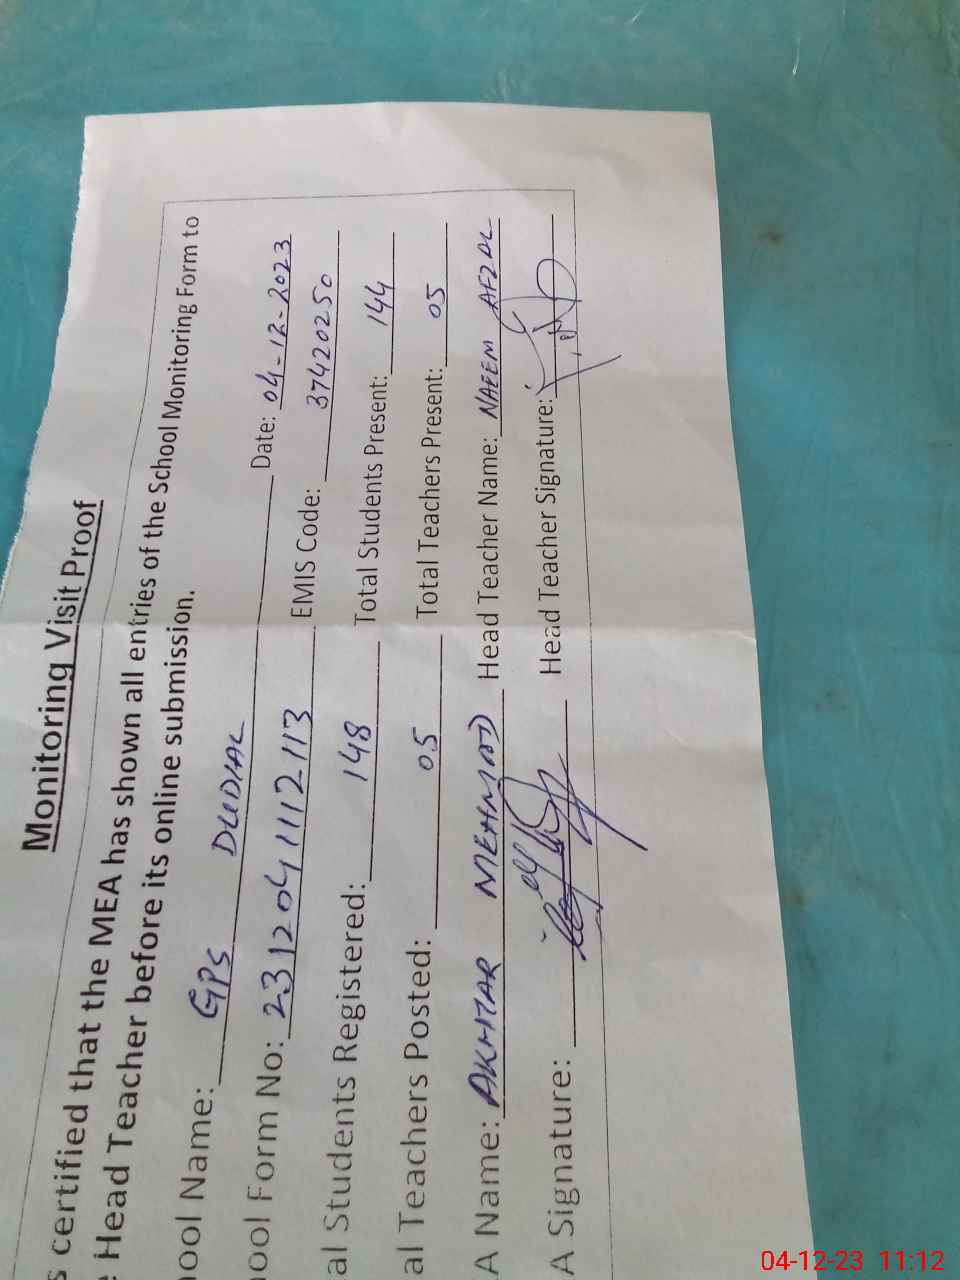 Monitoring Visit Proof
s certified that the MEA has shown all entries of the School Monitoring Form to
e Head Teacher before its online submission.
ool Name: GPS DUDIAL Date: 04-12-2023
ool Form No: 2312041112113 EMIS Code: 37420250
al Students Registered: 148 Total Students Present: 144
al Teachers Posted: 05 Total Teachers Present: 05
A Name: AKHTAR MEHMOOD Head Teacher Name: NAEEM AFZAL
A Signature: Head Teacher Signature:
04-12-23 11:12